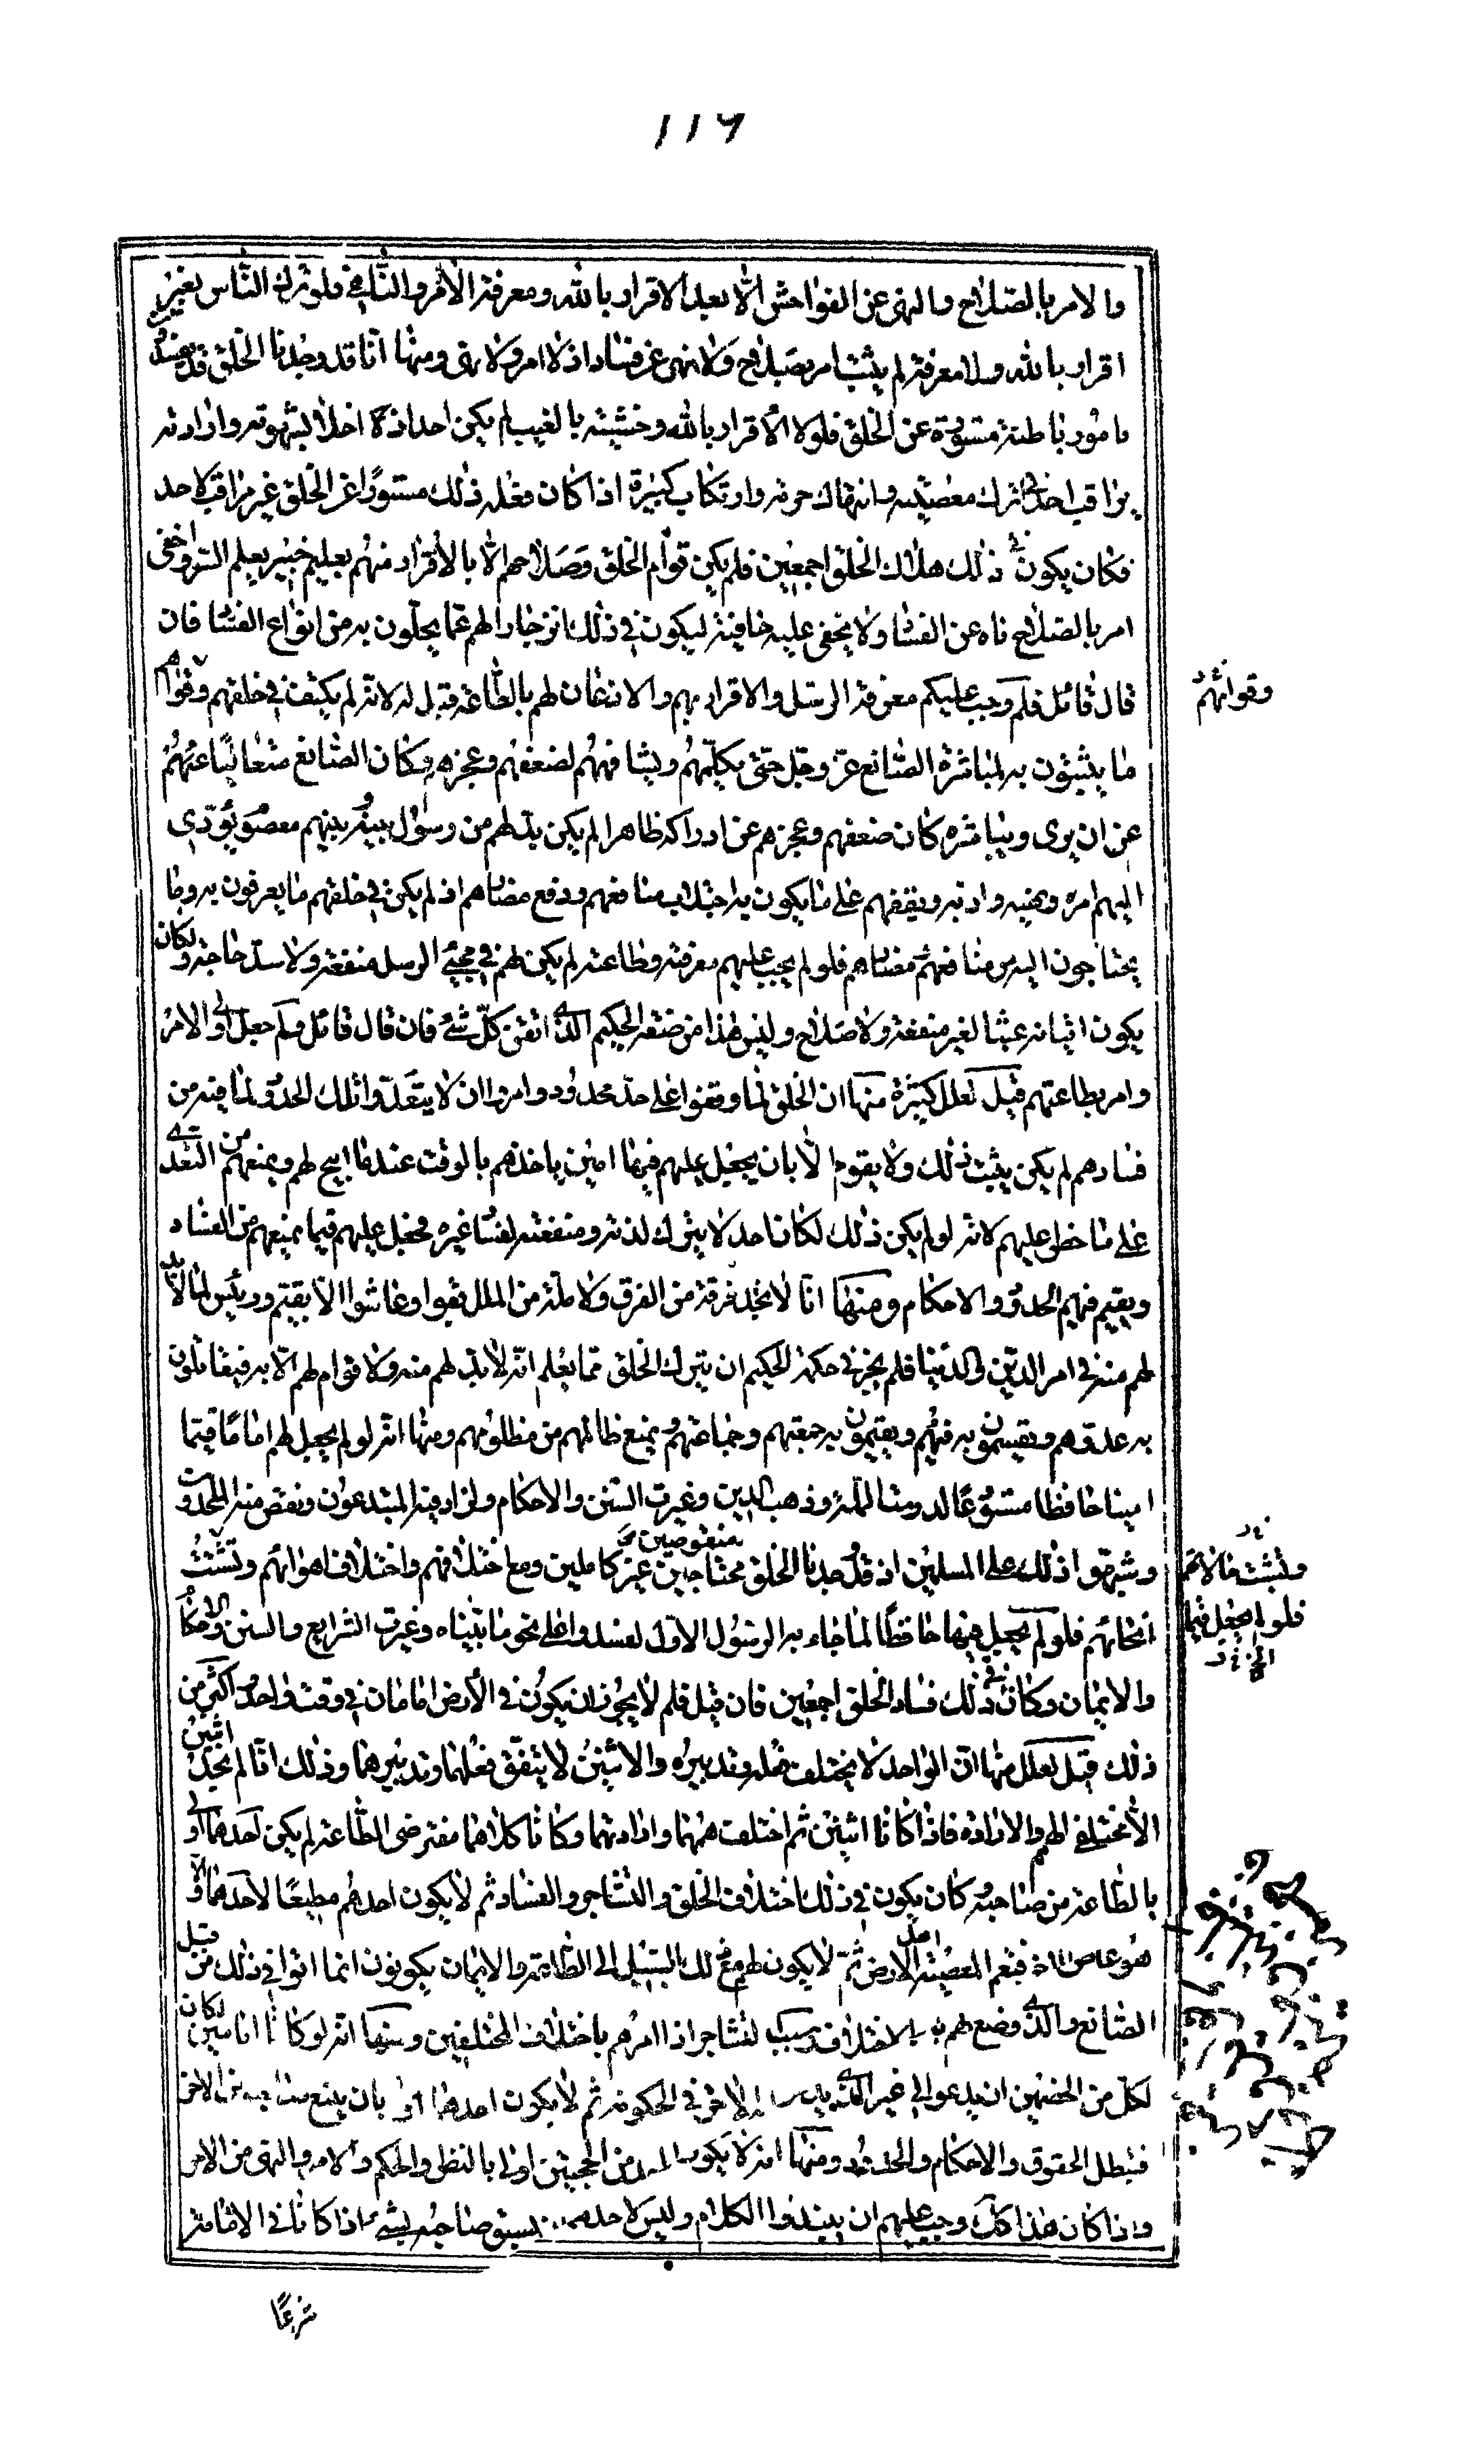 ١١٦
والامر بالصلاح والنهي عن الفواحش الا بعد الاقرار بالله ومعرفة الامر والناهي فلو ترك الناس بغير
اقرار بالله ولا معرفة لم يثبت امر بصلاح ولا نهي عن فساد اذ لا امر ولا نهي ومنها انا قد وجدنا الخلق قد يفسدون
بامور باطنة مستورة عن الخلق فلولا الاقرار بالله وخشيته بالغيب لم يكن احد اذا خلا بشهوته وارادته
يراقب احدا في ترك معصية وانتهاك حرمة وارتكاب كبيرة اذا كان فعله ذلك مستورا عن الخلق غير مراقب لاحد
فكان يكون في ذلك هلاك الخلق اجمعين فلم يكن قوام الخلق وصلاحهم الا بالاقرار منهم بعليم خبير يعلم السر واخفى
امر بالصلاح ناه عن الفساد ولا يخفى عليه خافية ليكون في ذلك انزجار لهم عما يخلون به من انواع الفساد فان
قال قائل فلم وجب عليكم معرفة الرسل والاقرار بهم والاذعان لهم بالطاعة قيل له لانه لم يكتف في خلقهم وقواهم
وقوائهم
ما يثبتون به لمباشرة الصانع عز وجل حتى يكلمهم ويشافههم لضعفهم وعجزهم وكان الصانع متعاليا عنهم
عن ان يرى ويباشره كان ضعفهم وعجزهم عن ادراكه ظاهرا لم يكن بد لهم من رسول بينه وبينهم معصوم يؤدي
اليهم امره ونهيه وادبه ويقفهم على ما يكون به اجتلاب منافعهم ودفع مضارهم اذ لم يكن في خلقهم ما يعرفون به وما
يحتاجون اليه من منافعهم مضارهم فلو لم يجب عليهم معرفته وطاعته لم يكن لهم في مجيئ الرسل منفعة ولا سد حاجة ولكان
يكون اتيانه عبثا لغير منفعة ولا صلاح وليس هذا من صفة الحكيم الذي اتقن كل شئ فان قال قائل ولم جعل اولي الامر
وامر بطاعتهم قيل لعلل كثيرة منها ان الخلق لما وقفوا على حد محدود وامروا ان لا يتعدوا تلك الحدود لما فيه من
فسادهم لم يكن يثبت ذلك ولا يقوم الا بان يجعل عليهم فيها امين ياخذهم بالوقت عند ما ابيح لهم ويمنعهم من التعدي
على ما حظر عليهم لانه لو لم يكن ذلك لكان احد لا يترك لذته ومنفعته لفساد غيره فجعل عليهم قيما يمنعهم من الفساد
ويقيم فيهم الحدود والاحكام ومنها انا لا نجد فرقة من الفرق ولا ملة من الملل بقوا وعاشوا الا بقيم ورئيس لما لابد
لهم منه في امر الدين والدنيا فلم يجز في حكمة الحكيم ان يترك الخلق مما يعلم انه لابد لهم منه ولا قوام لهم الا به فيقاتلون
به عدوهم ويقسمون به فيئهم ويقيمون به جمعتهم وجماعتهم ويمنع ظالمهم من مظلومهم ومنها انه لو لم يجعل لهم اماما قيما
امينا حافظا مستودعا لدرست الملة وذهب الدين وغيرت السنن والاحكام ولزاد فيه المبتدعون ونقص منه الملحدون
وشبهوا ذلك على المسلمين اذ قد وجدنا الخلق منقوصين محتاجين غير كاملين ومع اختلافهم واختلاف اهوائهم وتشتت
وتشتت حالاتهم
انحائهم فلو لم يجعل فيها حافظا لما جاء به الرسول الاول لفسدوا على نحو ما بيناه وغيرت الشرايع والسنن والاحكام
فلو لم يجعل فيها
والايمان وكان في ذلك فساد الخلق اجمعين فان قيل فلم لا يجوز ان يكون في الارض امامان في وقت واحد اكثر من
ذلك قيل لعلل منها ان الواحد لا يختلف فعله وتدبيره والاثنين لا يتفق فعلهما وتدبيرهما وذلك انا لم نجد اثنين
الا مختلفي الهم والارادة فاذا كانا اثنين ثم اختلفت هممهما وارادتهما وكانا كلاهما مفترضي الطاعة لم يكن احدهما اولى
بالطاعة من صاحبه فكان يكون في ذلك اختلاف الخلق والتشاجر والفساد ثم لا يكون احدهم مطيعا لاحدهما الا و
هو عاص للاخر فتعم المعصية اهل الارض ثم لا يكون لهم مع ذلك السبيل الى الطاعة والايمان يكونون انما اتوا في ذلك من قبل
الصانع والذي وضع لهم الاختلاف وسبب التشاجر اذا امرهم باختلاف المختلفين ومنها انه لو كانا امامين لكان
لكل من الخصمين ان يدعو الى غير الذي الاخر في الحكومة ثم لا يكون احدهما اولى بان يتبع صاحبه من الاخر
فتبطل الحقوق والاحكام والحدود ومنها انه لا يكون من الحجتين اولى بالنظر والحكم والامر والنهي من الاخر
واذا كان هذا كك وجب عليهم ان يبتدوا الكلام وليس لاحدهما يسبق صاحبه بشئ اذا كانا في الامامة
شرعا